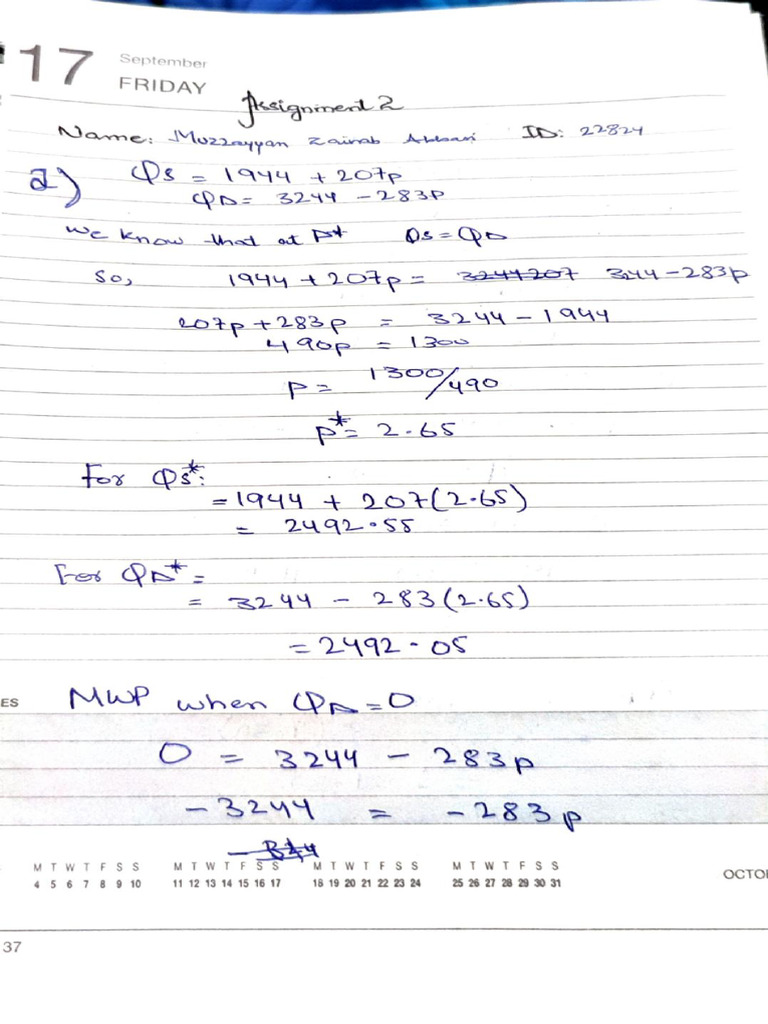 17 September
FRIDAY
Assignment 2
Name: Muzzayyan Zainab Abbasi ID: 22824
a) Qs = 1944 + 207p
QD = 3244 - 283p
we know that at P* Qs = QD
So, 1944 + 207p = 3244-207 3244 - 283p
207p + 283p = 3244 - 1944
490p = 1300
P = 1300/490
P* = 2.65
For Qs*:
= 1944 + 207(2.65)
= 2492.55
For QD* =
= 3244 - 283(2.65)
= 2492.05
ES
MWP when QD = 0
0 = 3244 - 283p
-3244 = -283p
M T W T F S S M T W T F S S M T W T F S S M T W T F S S
4 5 6 7 8 9 10 11 12 13 14 15 16 17 18 19 20 21 22 23 24 25 26 27 28 29 30 31
OCTO
37